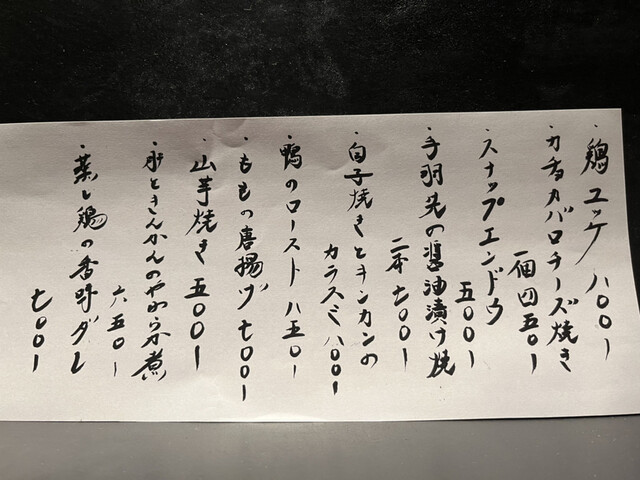 ・鶏ユッケ 八〇〇ー
・カチョカバロチーズ焼き
一個 四五〇ー
・スナップエンドウ
五〇〇ー
・手羽先の醤油漬け焼
二本 七〇〇ー
・白子焼きとキンカンの
カラスミ 八〇〇ー
・鴨のロースト 八五〇ー
・ももの唐揚げ 七〇〇ー
・山芋焼き 五〇〇ー
・肝ときんかんのやわらか煮
六五〇ー
・蒸し鶏の香味ダレ
七〇〇ー